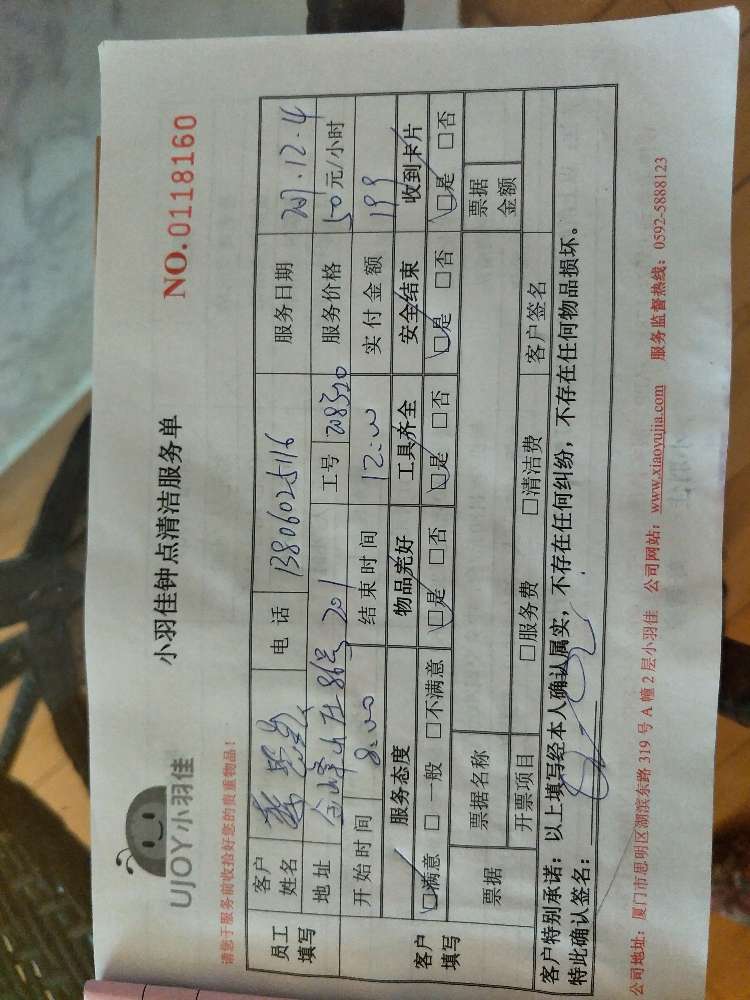 UJOY小羽佳
小羽佳钟点清洁服务单
NO.0118160
请您于服务前收拾好您的贵重物品！
员工填写 客户姓名 电话 13806025116 服务日期 2017.12.4
地址 金峰山庄86号201 工号 208320 服务价格 50元/小时
开始时间 8:00 结束时间 12:00 实付金额 199
客户填写 服务态度 物品完好 工具齐全 安全结束 收到卡片
□满意 □一般 □不满意 □是 □否 □是 □否 □是 □否 □是 □否
票据 票据名称 票据金额
开票项目 □服务费 □清洁费 客户签名
客户特别承诺：以上填写经本人确认属实，不存在任何纠纷，不存在任何物品损坏。
特此确认签名：
公司地址：厦门市思明区湖滨东路319号A幢2层小羽佳 公司网站：www.xiaoyujia.com 服务监督热线：0592-5888123